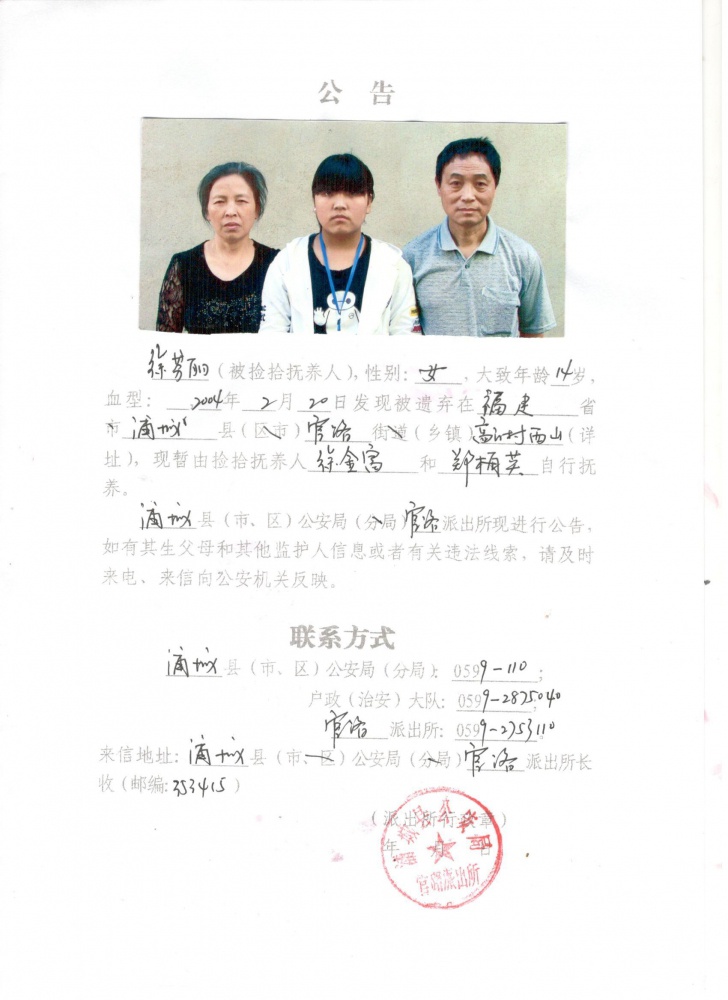 公 告
徐芳丽（被捡拾抚养人），性别：女，大致年龄14岁，
血型： 2004年 2月 20日发现被遗弃在 福建 省
市 浦城 县（区市）官路 街道（乡镇）村西山（详
址），现暂由捡拾抚养人 徐金富 和 郑柄英 自行抚
养。
浦城县（市、区）公安局（分局）官路派出所现进行公告，
如有其生父母和其他监护人信息或者有关违法线索，请及时
来电、来信向公安机关反映。
联系方式
浦城县（市、区）公安局（分局）：0599-110；
户政（治安）大队：0599-2825040
官路 派出所：0599-2753110
来信地址：浦城县（市、区）公安局（分局）官路派出所长
收（邮编：353415）
（派出所行政章）
年 月 日
浦城县公安局
官路派出所